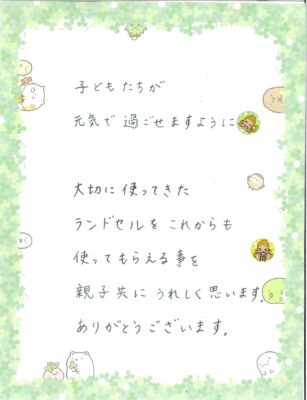 子どもたちが
元気で過ごせますように
大切に使ってきた
ランドセルをこれからも
使ってもらえる事を
親子共にうれしく思います。
ありがとうございます。